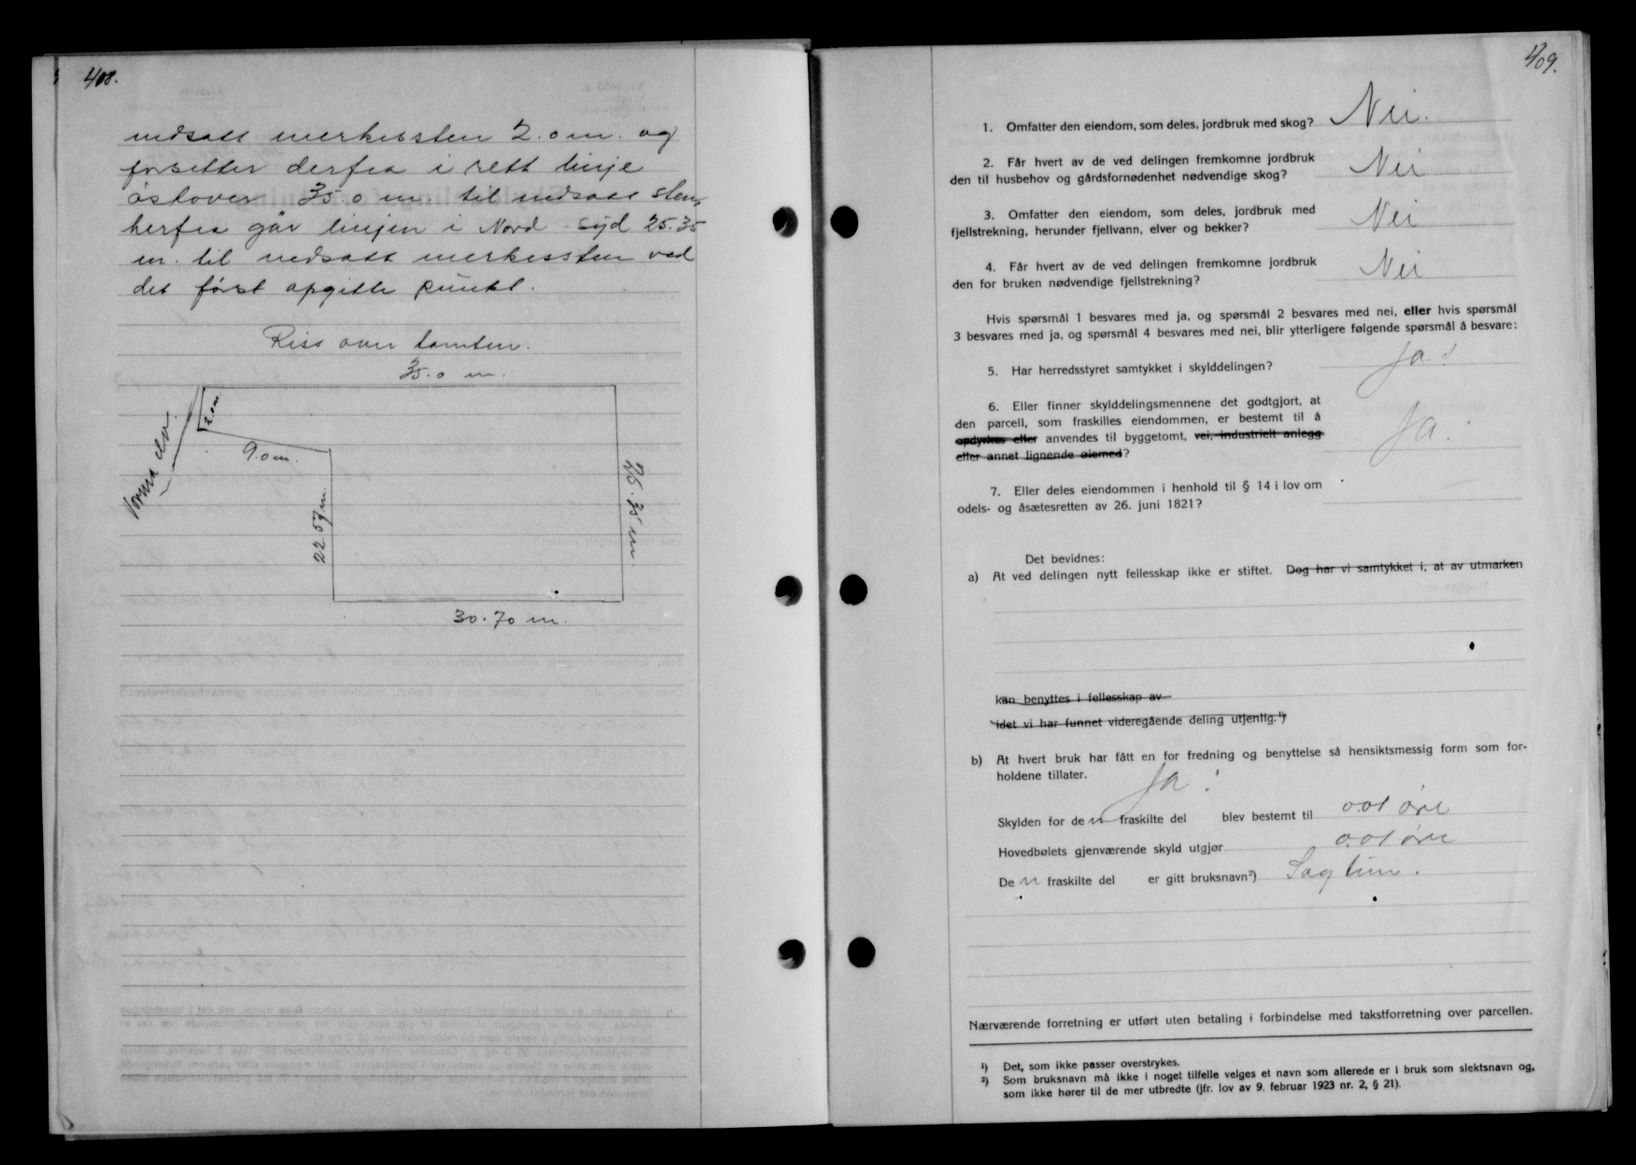 408.
nedsatt merkessten 2.0 m. og
forsetter derfra i rett linje
østover 35.0 m. til nedsatt sten,
herfra går linjen i Nord - Syd 25.35
m. til nedsatt merkessten ved
det først opgitte punkt.
Riss over tomten.
35.0 m.
2.0 m.
Vorma elv.
9.0 m.
22.57 m.
25.35 m.
30.70 m.
409.
1. Omfatter den eiendom, som deles, jordbruk med skog? Nei.
2. Får hvert av de ved delingen fremkomne jordbruk
den til husbehov og gårdsfornødenhet nødvendige skog? Nei
3. Omfatter den eiendom, som deles, jordbruk med
fjellstrekning, herunder fjellvann, elver og bekker? Nei
4. Får hvert av de ved delingen fremkomne jordbruk
den for bruken nødvendige fjellstrekning? Nei
Hvis spørsmål 1 besvares med ja, og spørsmål 2 besvares med nei, eller hvis spørsmål
3 besvares med ja, og spørsmål 4 besvares med nei, blir ytterligere følgende spørsmål å besvare:
5. Har herredsstyret samtykket i skylddelingen? Ja!
6. Eller finner skylddelingsmennene det godtgjort, at
den parcell, som fraskilles eiendommen, er bestemt til å
opdyrkes eller anvendes til byggetomt, vei, industrielt anlegg
eller annet lignende øiemed? Ja.
7. Eller deles eiendommen i henhold til § 14 i lov om
odels- og åsætesretten av 26. juni 1821?
Det bevidnes:
a) At ved delingen nytt fellesskap ikke er stiftet. Dog har vi samtykket i, at av utmarken
kan benyttes i fellesskap av
idet vi har funnet videregående deling utjenlig.¹)
b) At hvert bruk har fått en for fredning og benyttelse så hensiktsmessig form som for-
holdene tillater.
Ja!
Skylden for den fraskilte del blev bestemt til 0.01 øre
Hovedbølets gjenværende skyld utgjør 0.01 øre
Den fraskilte del er gitt bruksnavn²) Sagtun.
Nærværende forretning er utført uten betaling i forbindelse med takstforretning over parcellen.
¹) Det, som ikke passer overstrykes.
²) Som bruksnavn må ikke i noget tilfelle velges et navn som allerede er i bruk som slektsnavn og,
som ikke hører til de mer utbredte (jfr. lov av 9. februar 1923 nr. 2, § 21).